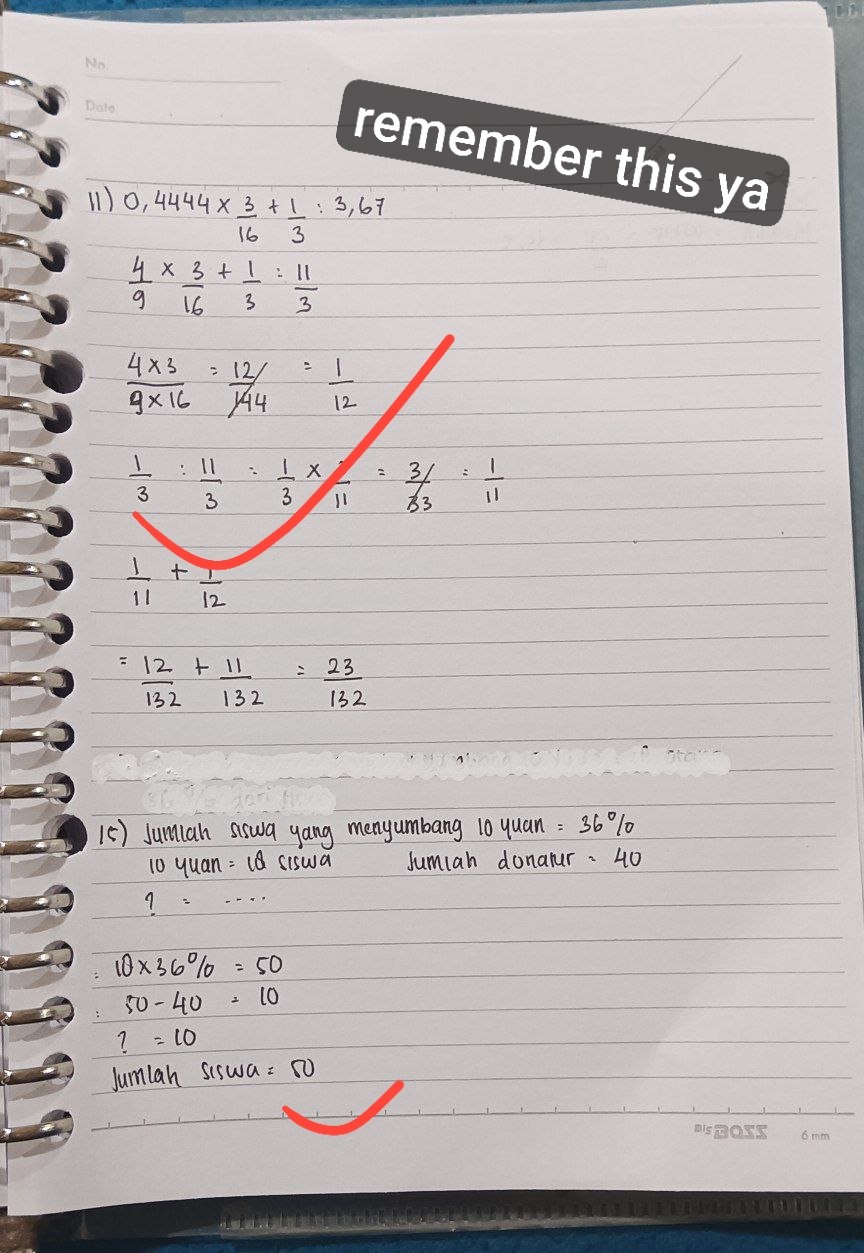 No.
Date
remember this ya
11) 0,4444 × 3/16 + 1/3 : 3,67
4/9 × 3/16 + 1/3 : 11/3
4×3/9×16 = 12/144 = 1/12
1/3 : 11/3 = 1/3 × /11 = 3/33 = 1/11
1/11 + 1/12
= 12/132 + 11/132 = 23/132
36% dari
15) Jumlah siswa yang menyumbang 10 yuan = 36%
10 yuan = 18 siswa Jumlah donatur = 40
? = ....
: 18×36% = 50
: 50-40 = 10
? = 10
Jumlah siswa = 50
BIG BOSS 6 mm